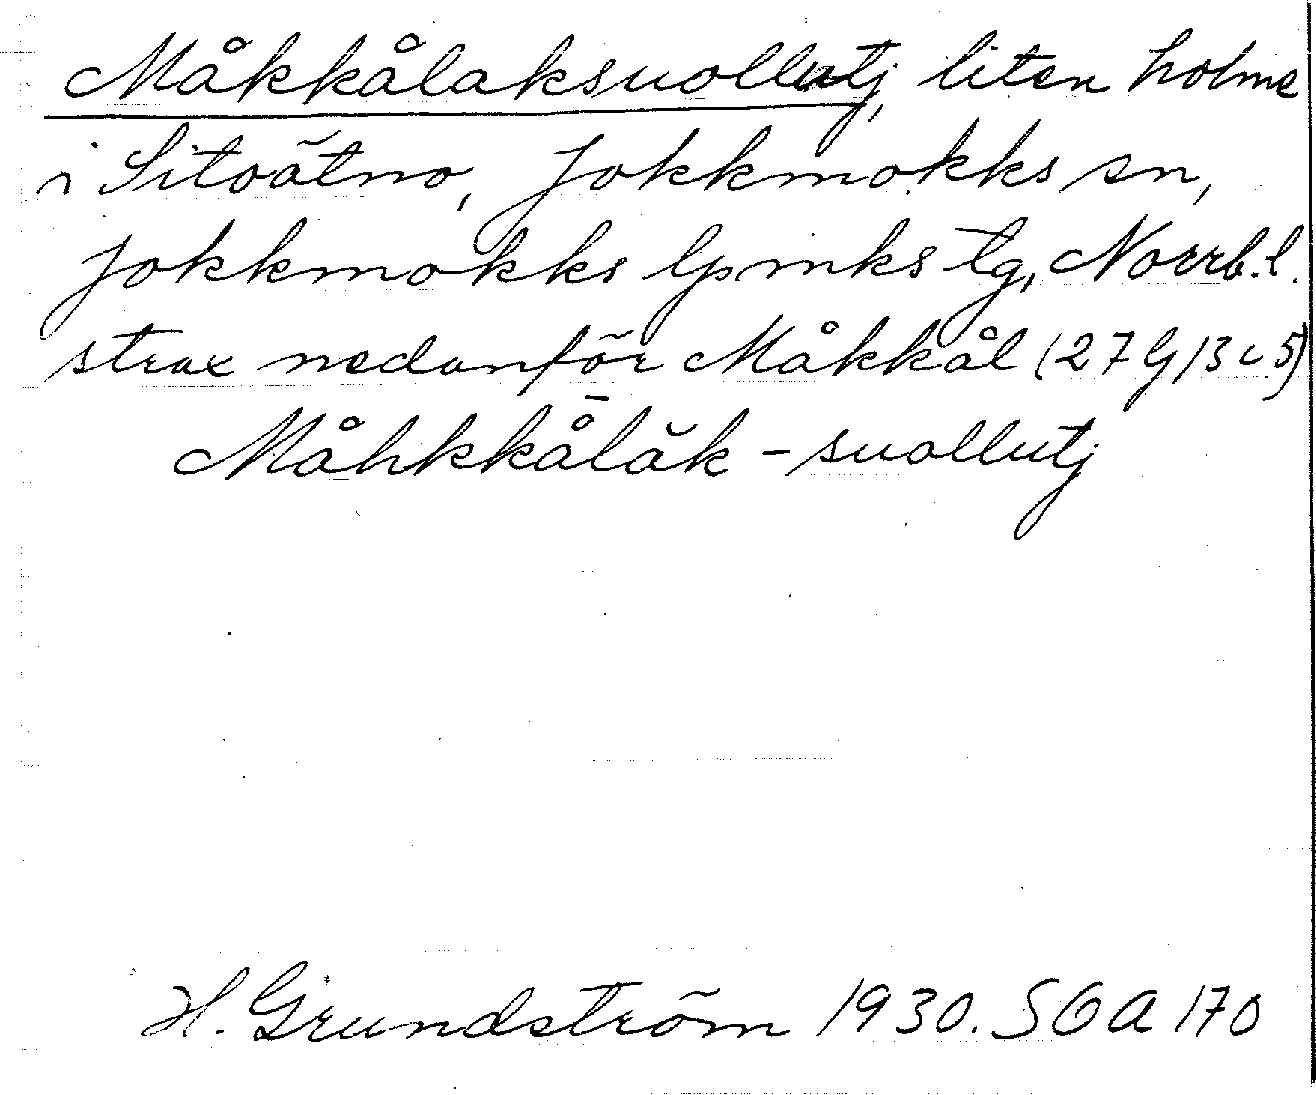 Måkkålaksuollutj, liten holme
i Sitoätno, Jokkmokks sn,
Jokkmokks lpmks tg, Norrb.l.
strax nedanför Måkkål (27 G 13 c 5)
Måhkkå̄lăk - suollutj
H. Grundström 1930. SOA 170